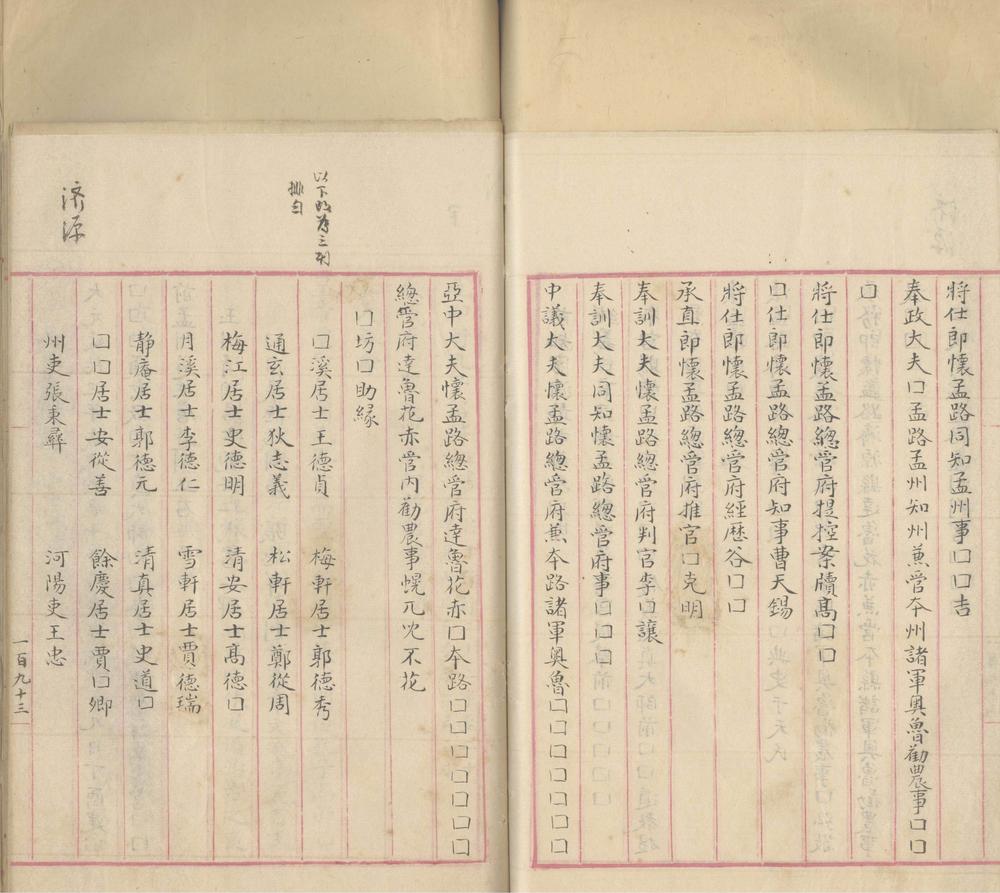 將仕郎懷孟路同知孟州事口口吉
奉政大夫口孟路孟州知州兼管夲州諸軍奧魯勸農事口口
口
將仕郎懷孟路緫管府提控案牘髙口口
口仕郎懷孟路緫管府知事曹天錫
將仕郎懷孟路緫管府經歷谷口口
承直郎懷孟路緫管府推官口克明
奉訓大夫懷孟路緫管府判官李口讓
奉訓大夫同知懷孟路緫管府事口口口
中議大夫懷孟路緫管府兼夲路諸軍奧魯口口口口口
亞中大夫懷孟路緫管府達魯花赤口夲路口口口口口口口
緫管府達魯花赤管内勸農事幌兀歹不花
口坊口助縁
口溪居士王德貞　梅軒居士郭德秀
通玄居士狄志義　松軒居士鄭從周
梅江居士史德明　清安居士髙德口
月溪居士李德仁　雪軒居士賈德瑞
靜庵居士郭德元　清真居士史道口
口口居士安從善　餘慶居士賈口卿
州吏張秉彞　河陽吏王忠
以下改为三列
排勻
济源
一百九十三